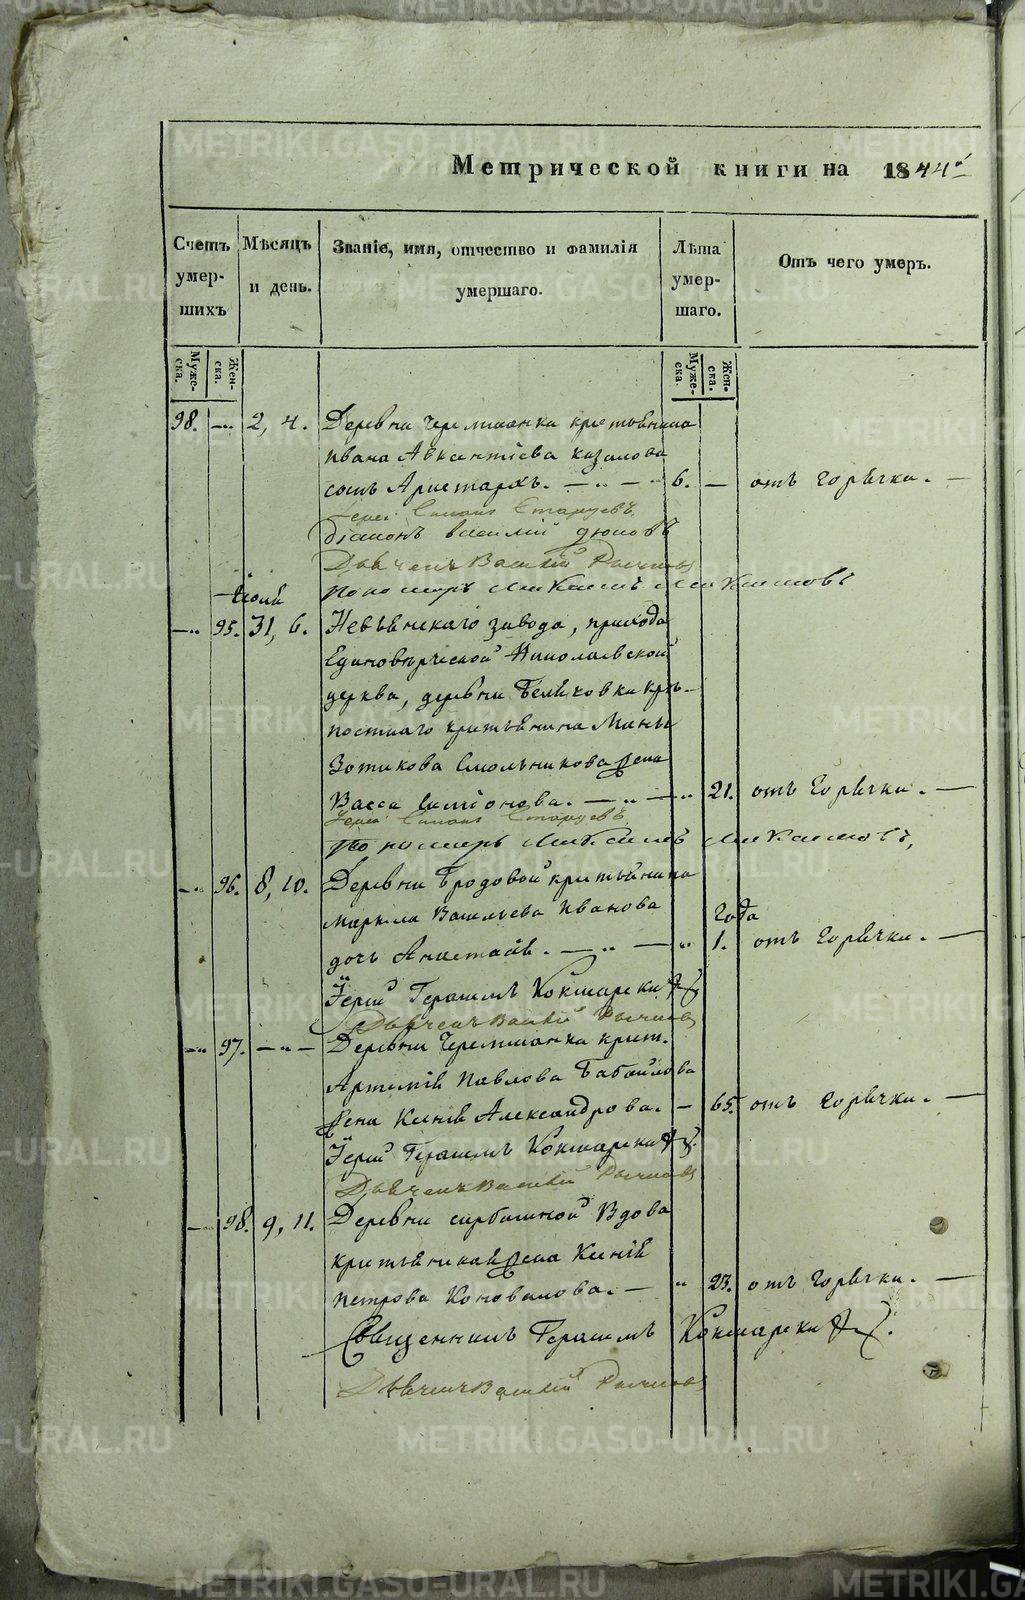 Метрической книги на 1844й
Счетъ умер-шихъ
Мѣсяцъ и день.
Званіе, имя, отчество и фамилія умершаго.
Лѣта умер-шаго.
Отъ чего умеръ.
Муже-ска.
Жен-ска.
Муже-ска.
Жен-ска.
98. 2, 4. Деревни Черемшанки крестьянина
Ивана Авксентіева Казанцова
сынъ Аристархъ. 6. отъ горячки.
Іерей Симеонъ Старцевъ
діаконъ Василій
Дьячекъ Василій
пономарь Михаилъ
Іюля
95. 31, 6. Невьянскаго завода, прихода
Единовѣрческой Николаевской
церкви, деревни Бѣликовки крѣ-
постнаго крестьянина
Зотикова Смольникова жена
Васса Симеонова. 21. отъ горячки.
Іерей Симеонъ Старцевъ
пономарь Михаилъ
96. 8, 10. Деревни Бродовой крестьянина
Маркела Васильева Иванова
года
дочь Анастасія. 1. отъ горячки.
Іерей Герасимъ Кокшарскій
Дьячекъ Василій
97. Деревни Черемшанки крест.
Артемія Павлова Бабайлова
жена Ксенія Александрова. 65. отъ горячки.
Іерей Герасимъ Кокшарскій
Дьячекъ Василій
98. 9, 11. Деревни Сербишиной вдова
крестьянская жена Ксенія
Петрова Коновалова. 23. отъ горячки.
Священникъ Герасимъ Кокшарскій
Дьячекъ Василій